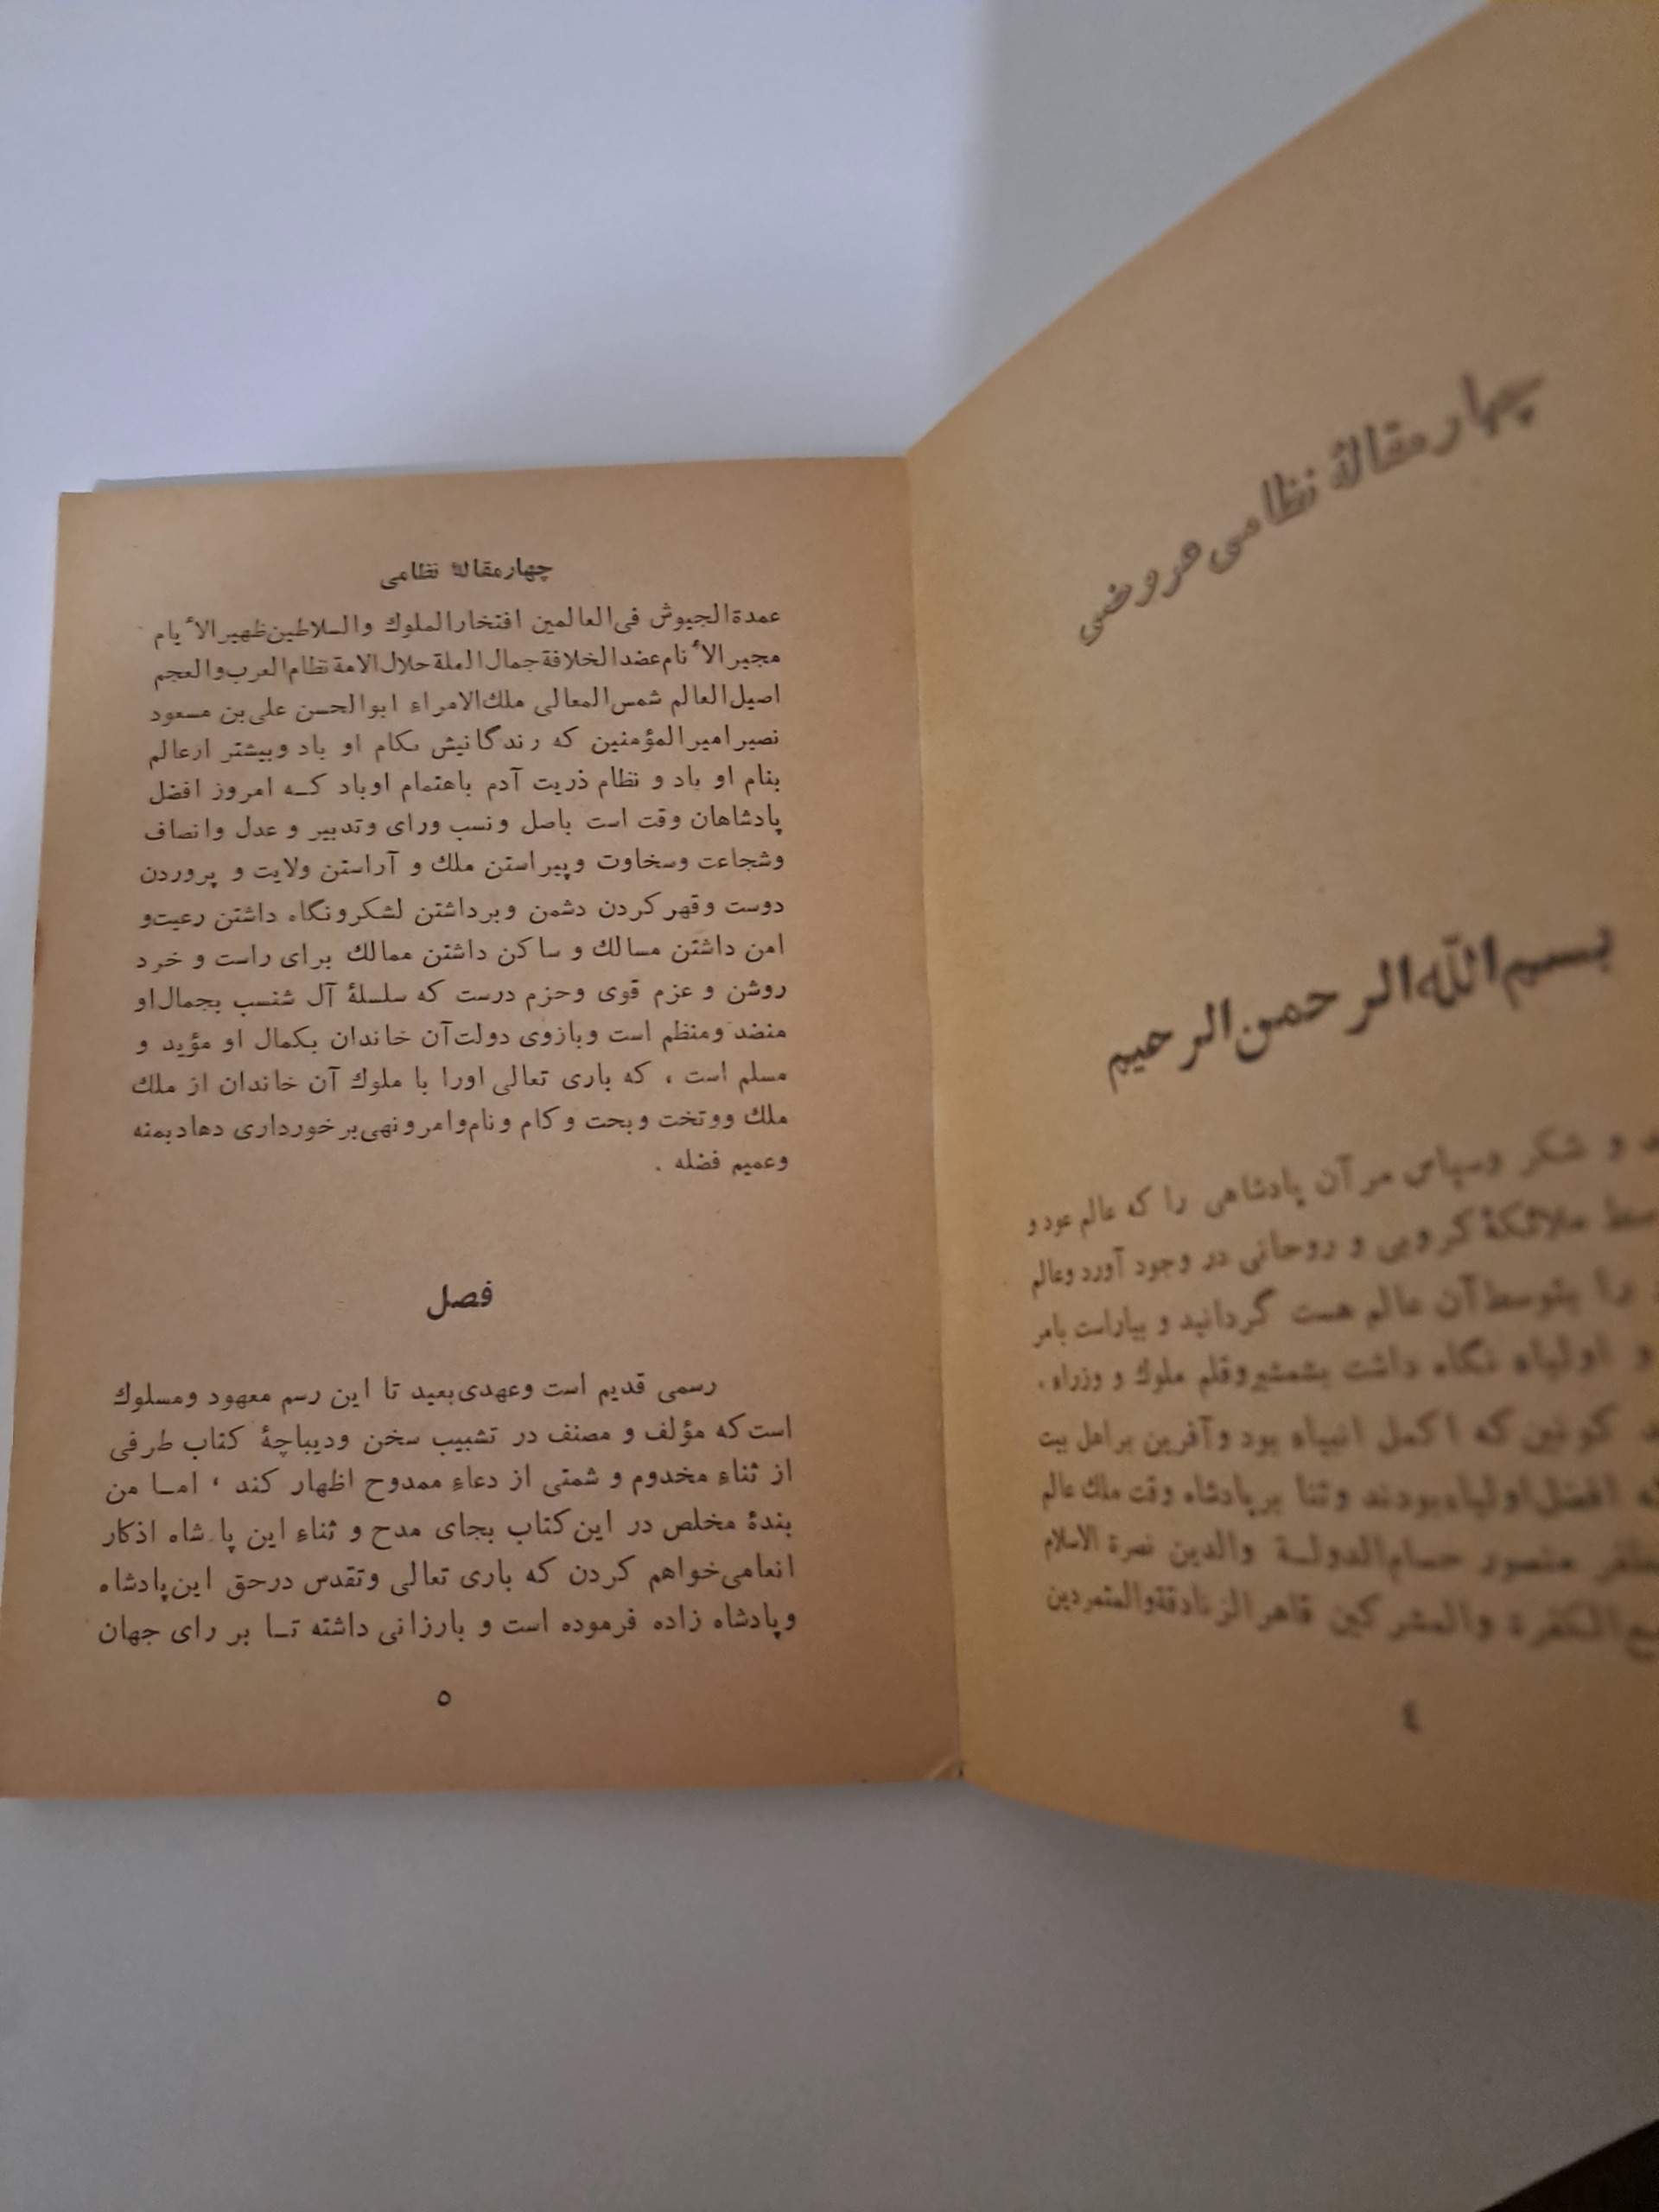 چهار مقالهٔ نظامی عروضی
بسم الله الرحمن الرحیم
و شکر وسپاس مر آن پادشاهی را که عالم عود و
ملائکهٔ کروبی و روحانی در وجود آورد وعالم
را بتوسط آن عالم هست گردانید و بیاراست بامر
و اولیاء نگاه داشت بشمشیر وقلم ملوك و وزراء ،
کونین که اکمل انبیاء بود و آفرین بر اهل بیت
افضل اولیاء بودند وثنا بر پادشاه وقت ملك عالم
منصور حسام الدولــة والدین نصرة الاسلام
الکفرة والمشرکین قاهر الزنادقة والمتمردین
٤
چهار مقالهٔ نظامی
عمدة الجیوش فی العالمین افتخار الملوك والسلاطین ظهیر الأیام
مجیر الأنام عضد الخلافة جمال الملة جلال الامة نظام العرب والعجم
اصیل العالم شمس المعالی ملك الامراء ابوالحسن علی بن مسعود
نصیر امیر المؤمنین که زندگانیش بکام او باد وبیشتر ازعالم
بنام او باد و نظام ذریت آدم باهتمام اوباد کــه امروز افضل
پادشاهان وقت است باصل ونسب ورای وتدبیر و عدل وانصاف
وشجاعت وسخاوت وپیراستن ملك و آراستن ولایت و پروردن
دوست وقهر کردن دشمن وبرداشتن لشکر ونگاه داشتن رعیت و
امن داشتن مسالك و ساکن داشتن ممالك برای راست و خرد
روشن و عزم قوی وحزم درست که سلسلهٔ آل شنسب بجمال او
منضد ومنظم است وبازوی دولت آن خاندان بکمال او مؤید و
مسلم است ، که باری تعالی اورا با ملوك آن خاندان از ملك
ملك ووتخت وبخت وکام ونام وامر ونهی بر خورداری دهاد بمنه
وعمیم فضله .
فصل
رسمی قدیم است وعهدی بعید تا این رسم معهود ومسلوك
است که مؤلف و مصنف در تشبیب سخن ودیباچهٔ کتاب طرفی
از ثناء مخدوم و شمتی از دعاء ممدوح اظهار کند ، امــا من
بندهٔ مخلص در این کتاب بجای مدح و ثناء این پادشاه اذکار
انعامی خواهم کردن که باری تعالی وتقدس درحق این پادشاه
وپادشاه زاده فرموده است و بارزانی داشته تــا بر رای جهان
٥